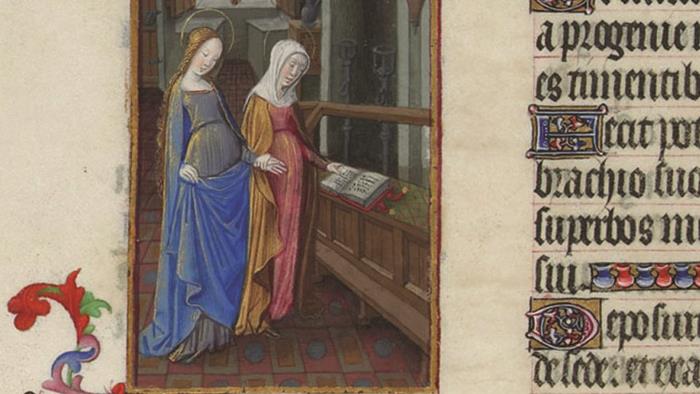 a progenie
es timentib
Fecit pot
brachio suo
superbos m
sui.
Deposui
de sede: et exa